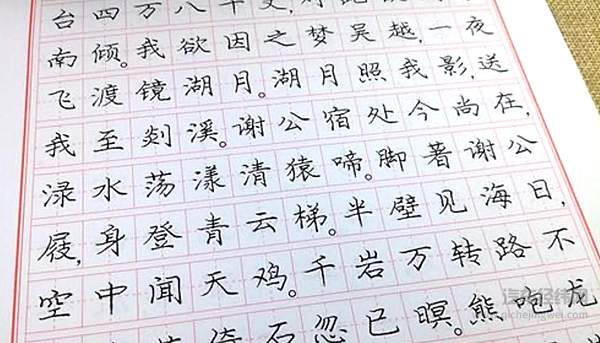 台四万八千丈,对此
南倾。我欲因之梦吴越,一夜
飞渡镜湖月。湖月照我影,送
我至剡溪。谢公宿处今尚在,
渌水荡漾清猿啼。脚著谢公
屐,身登青云梯。半壁见海日,
空中闻天鸡。千岩万转路不
倚石忽已暝。熊咆龙
汽车经纬网